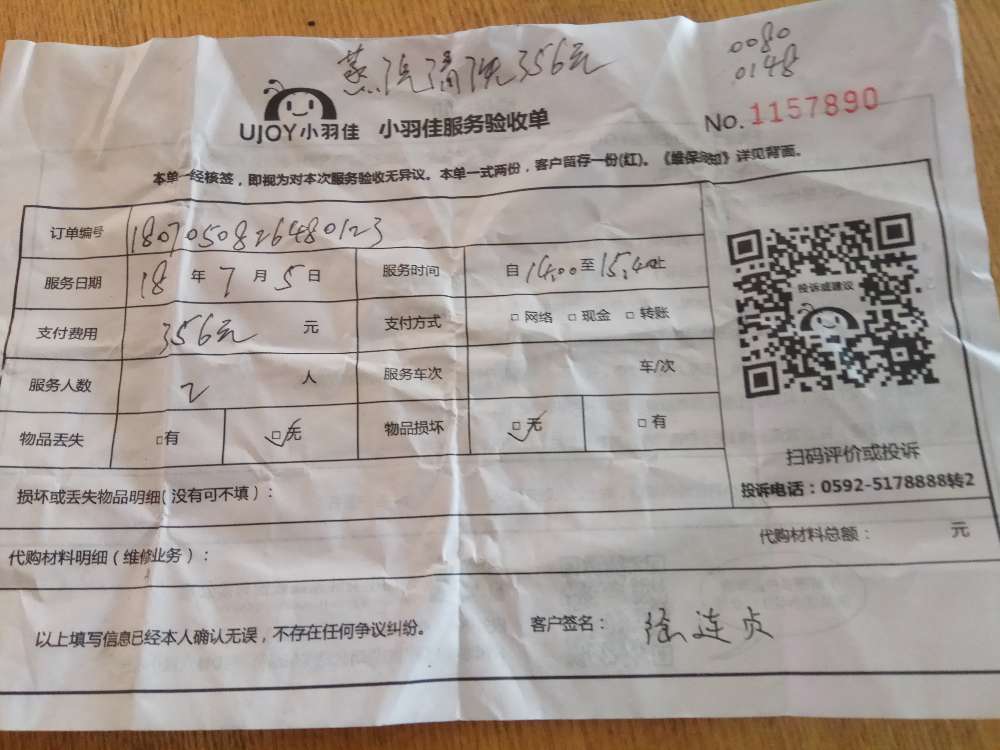 蒸汽清洗356元
0080
0148
UJOY小羽佳 小羽佳服务验收单
No. 1157890
本单一经核签，即视为对本次服务验收无异议。本单一式两份，客户留存一份(红)。《维保须知》详见背面。
订单编号 1807050826480123
服务日期 18 年 7 月 5 日 服务时间 自 14:00 至 15:40 止
支付费用 356元 元 支付方式 □ 网络 □ 现金 □ 转账
服务人数 2 人 服务车次 车/次
物品丢失 □有 ☑无 物品损坏 ☑无 □ 有
投诉或建议
扫码评价或投诉
投诉电话：0592-5178888转2
损坏或丢失物品明细(没有可不填)：
代购材料明细（维修业务）： 代购材料总额： 元
以上填写信息已经本人确认无误，不存在任何争议纠纷。 客户签名： 徐连贞